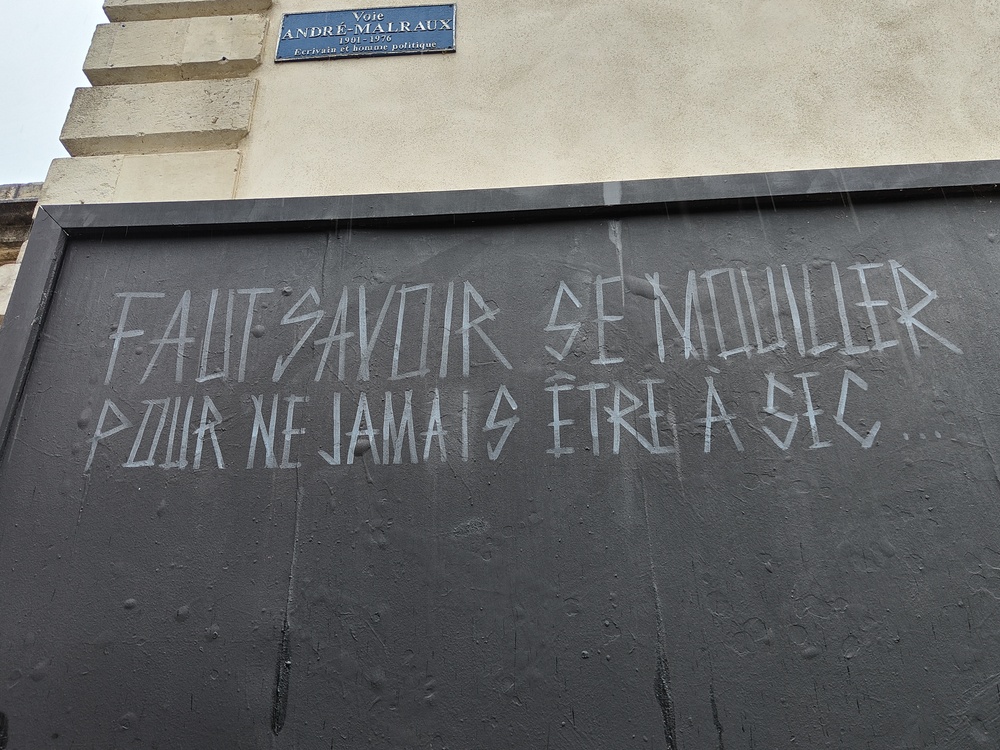 Voie
ANDRÉ-MALRAUX
1901-1976
Ecrivain et homme politique
FAUT SAVOIR SE MOUILLER
POUR NE JAMAIS ÊTRE À SEC...